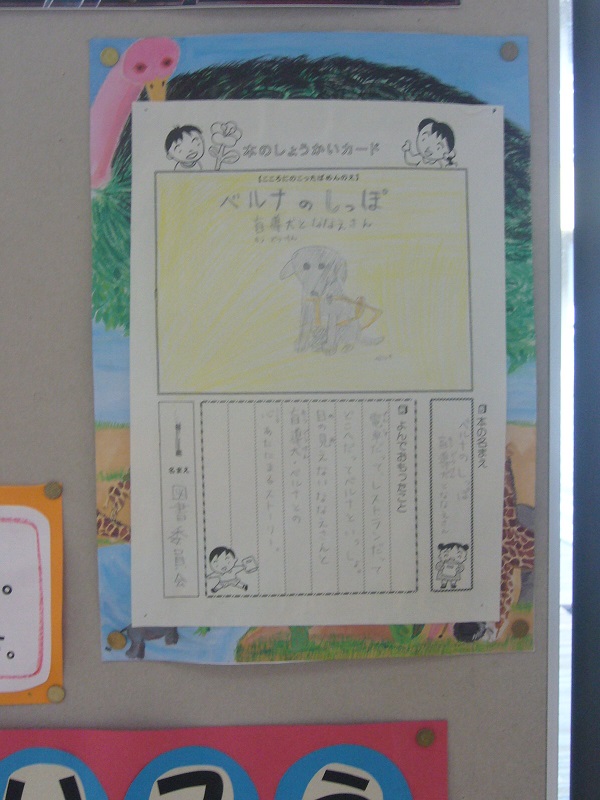 本のしょうかいカード
【こころにのこったばめんのえ】
ベルナのしっぽ
盲導犬とななえさん
本の名まえ
ベルナのしっぽ
よんでおもったこと
電車だってレストランだって
どこへだってベルナといっしょ。
目の見えないななえさんと
盲導犬・ベルナとの
心あたたまるストーリー。
名まえ
図書委員会
いてう